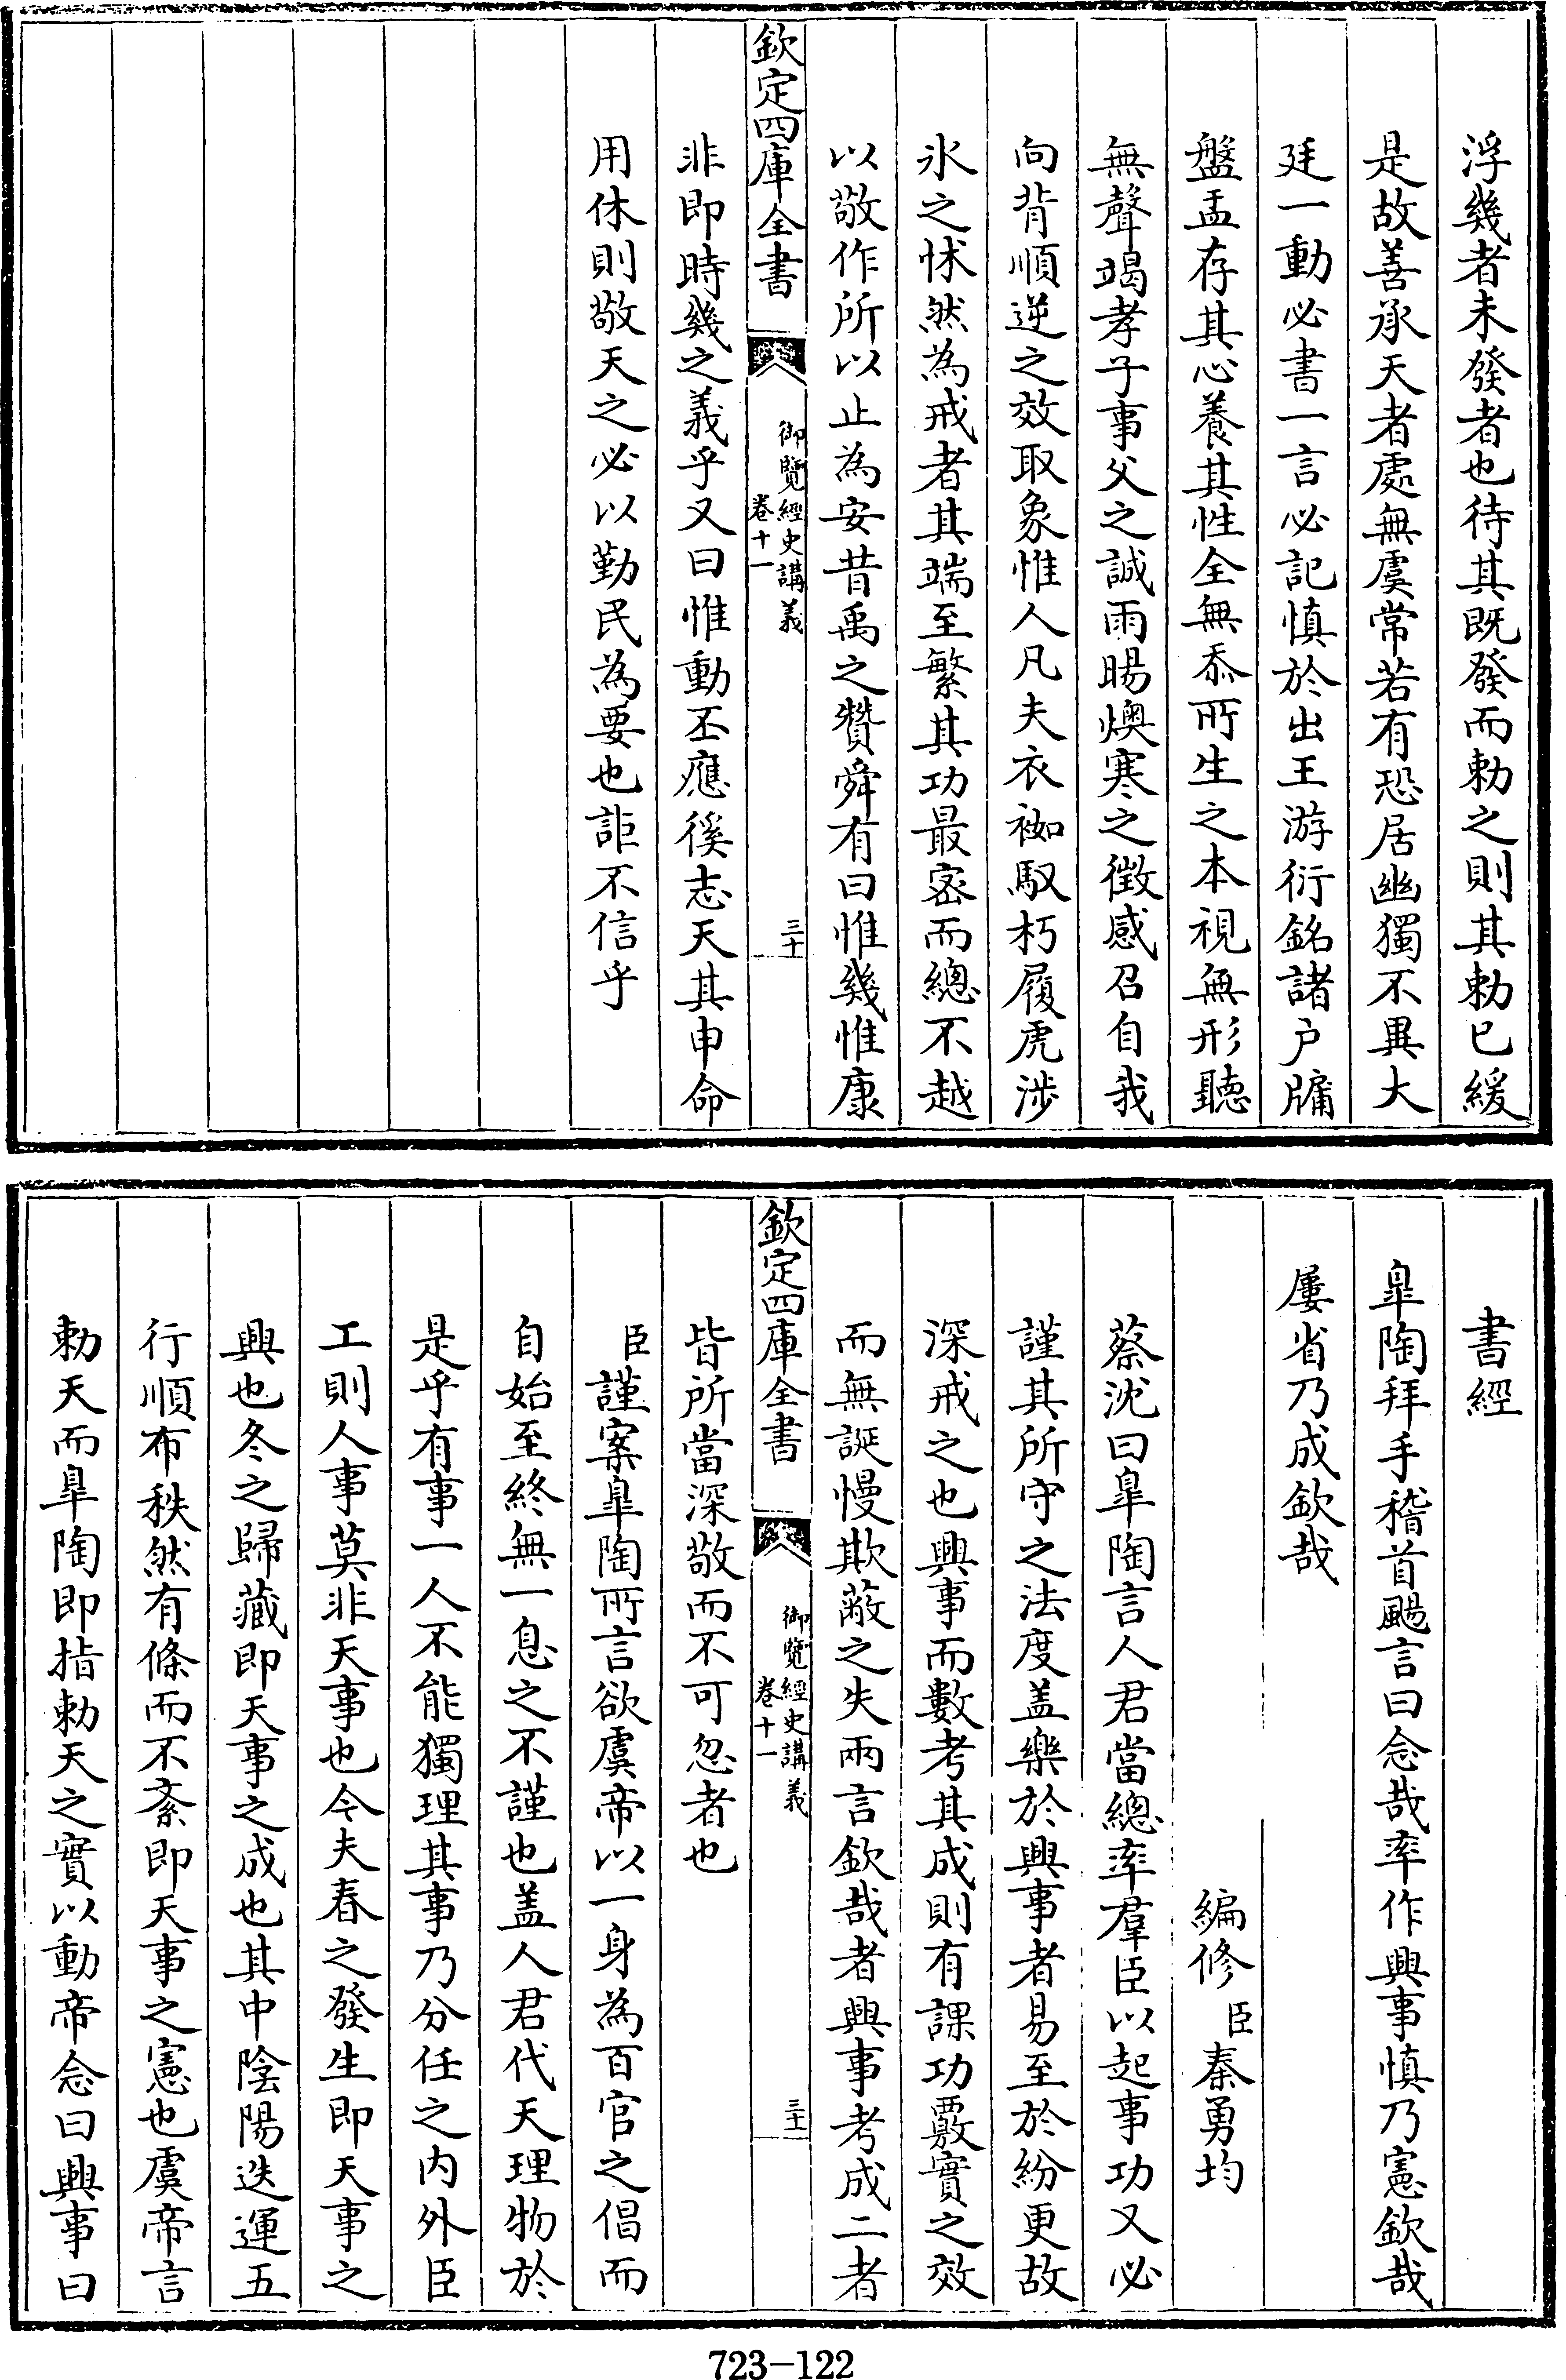 浮幾者未發者也待其既發而勅之則其勅已緩
是故善承天者處無虞常若有恐居幽獨不異大
廷一動必書一言必記慎於出王游衍銘諸户牖
盤盂存其心養其性全無忝所生之本視無形聽
無聲竭孝子事父之誠雨暘燠寒之徵感召自我
向背順逆之效取象惟人凡夫衣袽馭朽履虎涉
氷之怵然為戒者其端至繁其功最宻而總不越
以敬作所以止為安昔禹之贊舜有曰惟幾惟康
欽定四庫全書
御覽經史講義
卷十一
三十
非即時幾之義乎又曰惟動丕應徯志天其申命
用休則敬天之必以勤民為要也詎不信乎
書經
臯陶拜手稽首颺言曰念哉率作興事慎乃憲欽哉
屢省乃成欽哉
編修臣秦勇均
蔡沈曰臯陶言人君當總率羣臣以起事功又必
謹其所守之法度盖樂於興事者易至於紛更故
深戒之也興事而數考其成則有課功覈實之效
而無誕慢欺蔽之失兩言欽哉者興事考成二者
欽定四庫全書
御覽經史講義
卷十一
三十一
皆所當深敬而不可忽者也
臣謹案臯陶所言欲虞帝以一身為百官之倡而
自始至終無一息之不謹也盖人君代天理物於
是乎有事一人不能獨理其事乃分任之内外臣
工則人事莫非天事也今夫春之發生即天事之
興也冬之歸藏即天事之成也其中陰陽迭運五
行順布秩然有條而不紊即天事之憲也虞帝言
勅天而臯陶即指勅天之實以動帝念曰興事曰
723-122